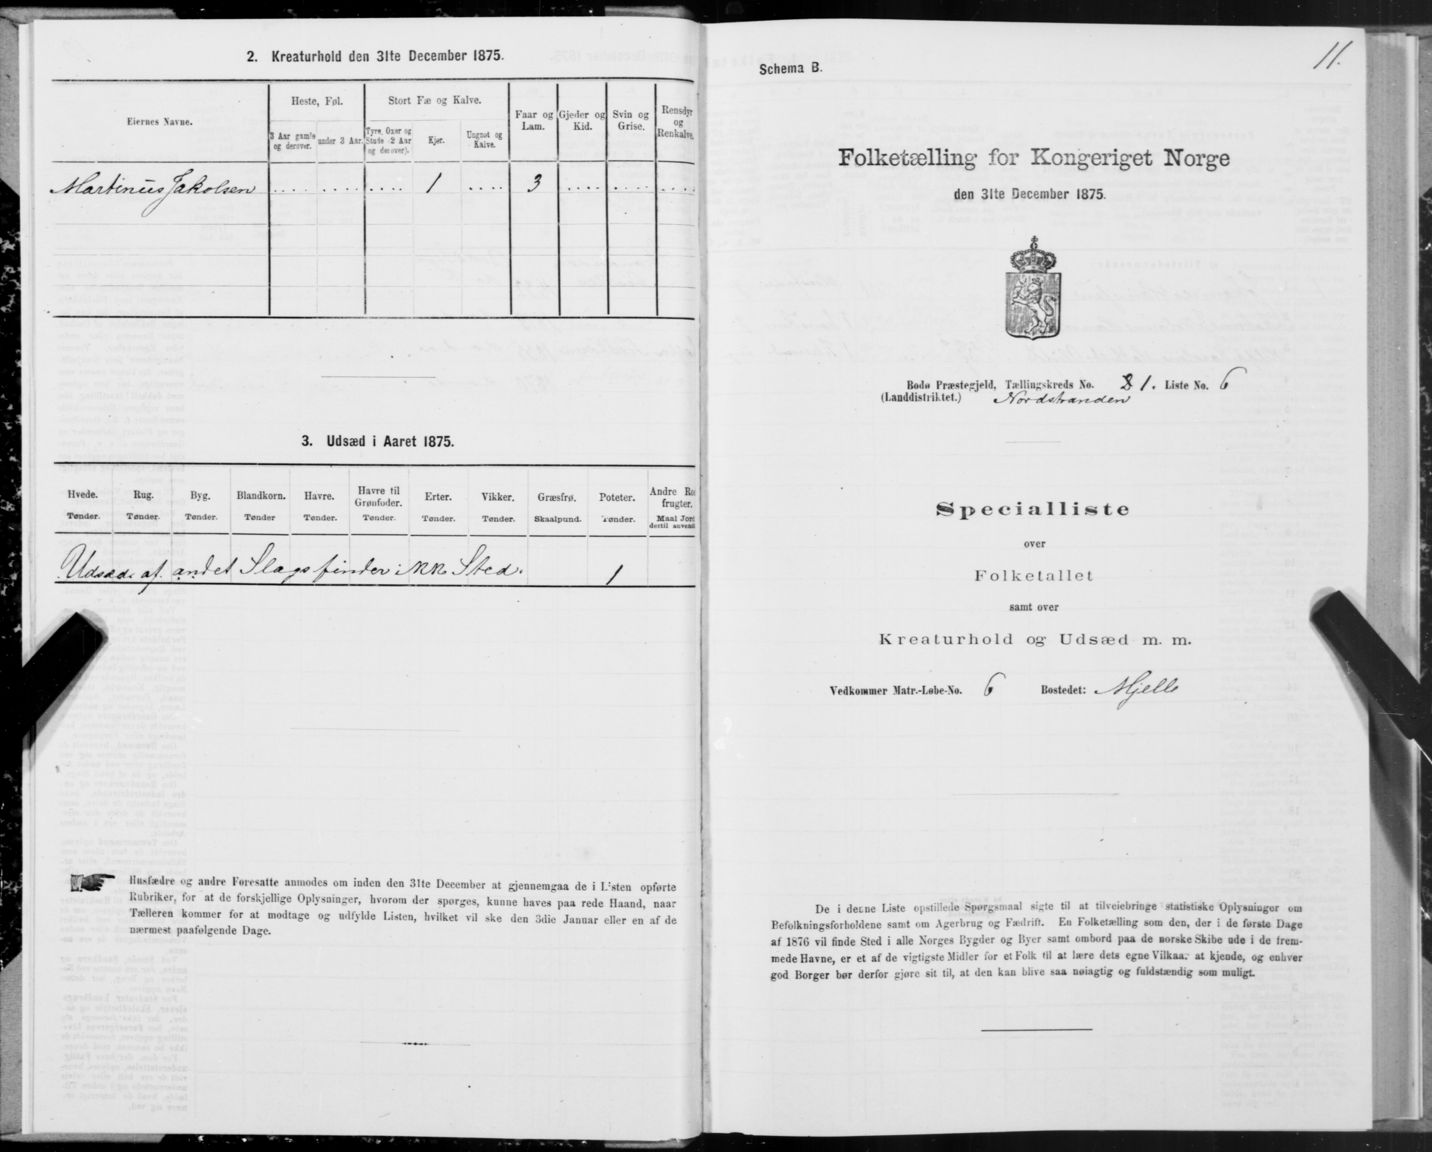 2. Kreaturhold den 31te December 1875.
Eiernes Navne.
Heste, Føl.
Stort Fæ og Kalve.
Faar og Lam.
Gjeder og Kid.
Svin og Grise.
Rensdyr og Renkalve.
3 Aar gamle og derover.
under 3 Aar.
Tyre, Oxer og Stude (2 Aar og derover).
Kjør.
Ungnøt og Kalve.
Martinus Jakobsen .... .... .... 1 .... 3 .... .... ....
3. Udsæd i Aaret 1875.
Hvede. Rug. Byg. Blandkorn. Havre. Havre til Grønfoder. Erter. Vikker. Græsfrø. Poteter. Andre Ro frugter.
Tønder. Tønder. Tønder. Tønder Tønder. Tønder. Tønder. Tønder. Skaalpund. Tønder. Maal Jord dertil anvend
Udsæd af andet Slags finder ikke Sted. 1
Husfædre og andre Foresatte anmodes om inden den 31te December at gjennemgaa de i Listen opførte
Rubriker, for at de forskjellige Oplysninger, hvorom der spørges, kunne haves paa rede Haand, naar
Tælleren kommer for at modtage og udfylde Listen, hvilket vil ske den 3die Januar eller en af de
nærmest paafølgende Dage.
11.
Schema B.
Folketælling for Kongeriget Norge
den 31te December 1875.
Bodø Præstegjeld, Tællingskreds No. 1. Liste No. 6
(Landdistriktet.) Nordstranden
Specialliste
over
Folketallet
samt over
Kreaturhold og Udsæd m. m.
Vedkommer Matr.-Løbe-No. 6 Bostedet: Mjelle
De i denne Liste opstillede Spørgsmaal sigte til at tilveiebringe statistiske Oplysninger om
Befolkningsforholdene samt om Agerbrug og Fædrift. En Folketælling som den, der i de første Dage
af 1876 vil finde Sted i alle Norges Bygder og Byer samt ombord paa de norske Skibe ude i de frem-
mede Havne, er et af de vigtigste Midler for et Folk til at lære dets egne Vilkaar at kjende, og enhver
god Borger bør derfor gjøre sit til, at den kan blive saa nøiagtig og fuldstændig som muligt.